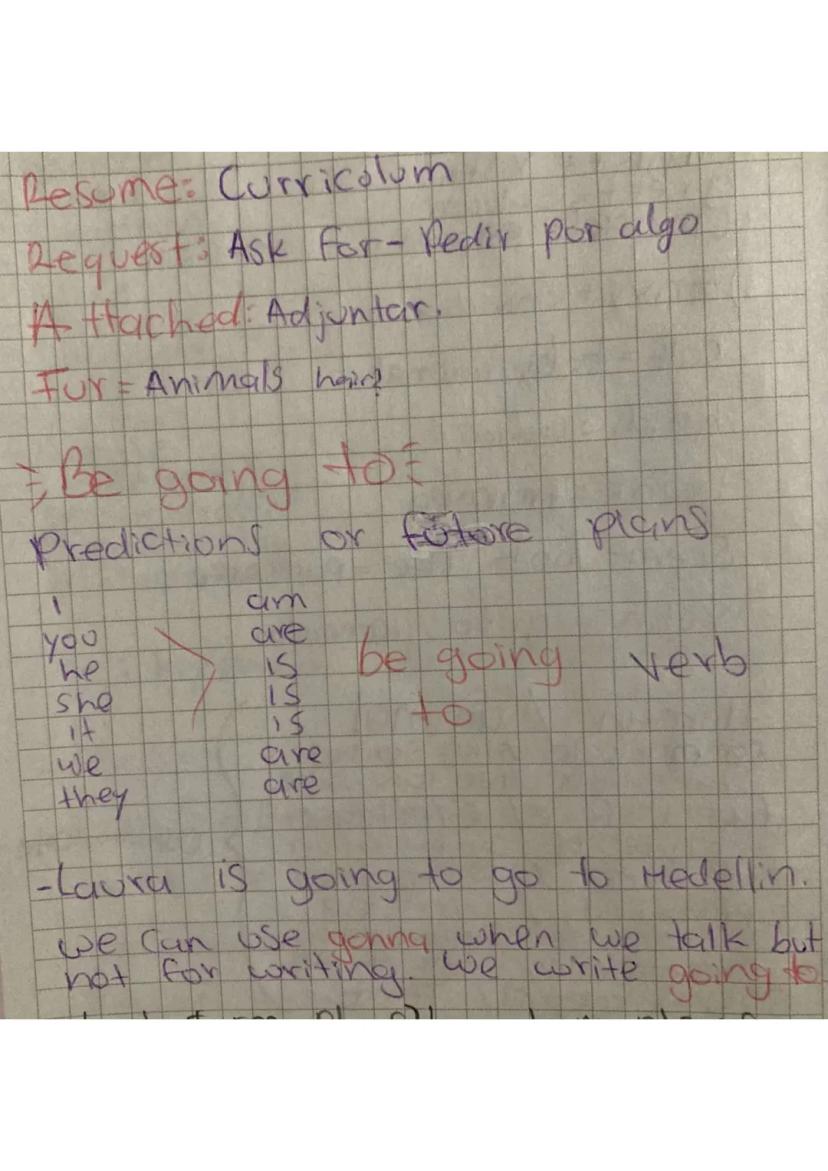 Resume: Curricolum
Request: Ask for - Pedir por algo
Attached: Adjuntar.
Fur = Animals hair
Be going to
Predictions or future plans
I am
you are
he is be going verb
she is to
it is
we are
they are
- Laura is going to go to Medellin.
we can use gonna when we talk but
not for writing. we write going to